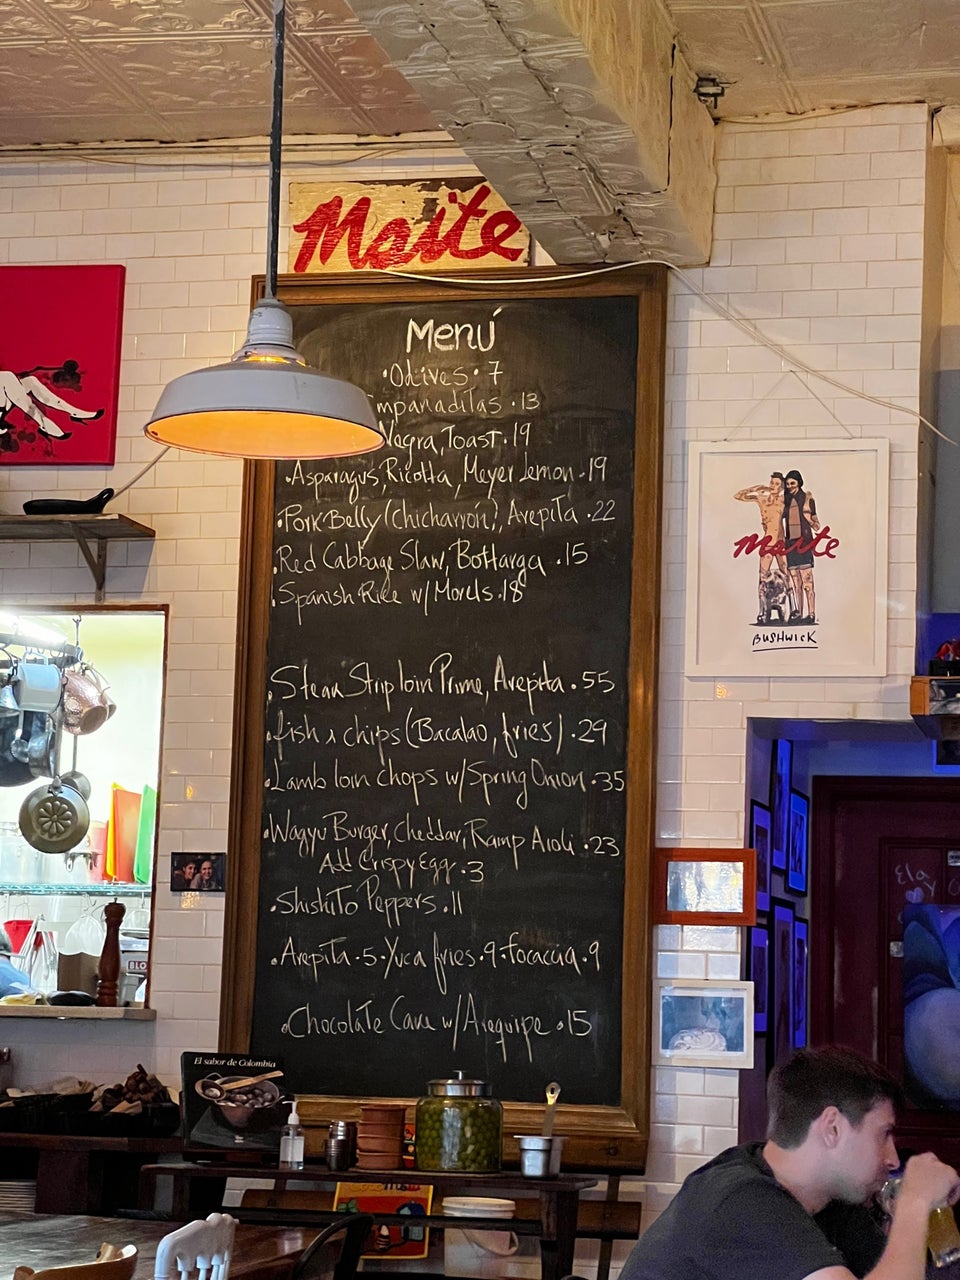 Maite
Menú
·Olives·7
Empanaditas·13
Negra, Toast·19
·Asparagus, Ricotta, Meyer Lemon·19
·Pork Belly (Chicharrón), Arepita·22
·Red Cabbage Slaw, Bottarga·15
·Spanish Rice w/ Morels·18
·Steak Striploin Prime, Arepita·55
·fish & chips (Bacalao, fries)·29
·Lamb loin chops w/ Spring Onion·35
·Wagyu Burger, Cheddar, Ramp Aioli·23
Add Crispy Egg·3
·Shishito Peppers·11
·Arepita·5·Yuca fries·9·focaccia·9
·Chocolate Cake w/ Arequipe·15
maite
BUSHWICK
El sabor de Colombia